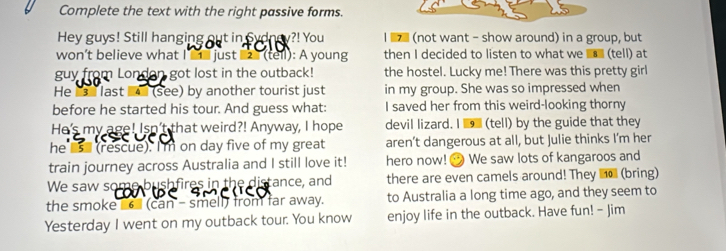 Complete the text with the right passive forms.
Hey guys! Still hanging out in Sydney?! You
was told
won't believe what I 1 just 2 (tell): A young
guy from London got lost in the outback!
was see
He 3 last 4 (see) by another tourist just
before he started his tour. And guess what:
He's my age! Isn't that weird?! Anyway, I hope
is rescued
he 5 (rescue). I'm on day five of my great
train journey across Australia and I still love it!
We saw some bush fires in the distance, and
can be smelled
the smoke 6 (can – smell) from far away.
Yesterday I went on my outback tour. You know
I 7 (not want – show around) in a group, but
then I decided to listen to what we 8 (tell) at
the hostel. Lucky me! There was this pretty girl
in my group. She was so impressed when
I saved her from this weird-looking thorny
devil lizard. I 9 (tell) by the guide that they
aren't dangerous at all, but Julie thinks I'm her
hero now! We saw lots of kangaroos and
there are even camels around! They 10 (bring)
to Australia a long time ago, and they seem to
enjoy life in the outback. Have fun! – Jim